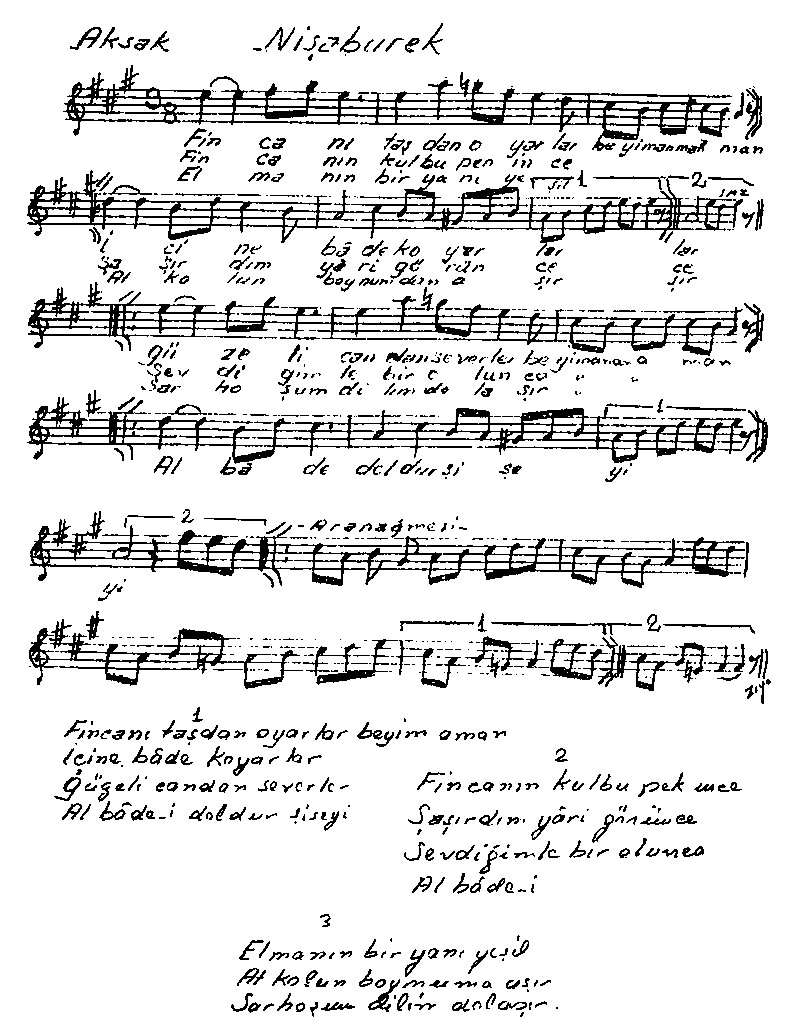 Aksak Nişaburek
9 8
Fin ca nı taş dan o yar lar be yimaman man
Fin ca nın kulbu pen in ce
El ma nın bir ya nı ye şil 1 2 saz
İ çi ne bâ de ko yar lar lar
Şa şır dım yâ ri gö rün ce ce
At ko lun boynumdan a şır şır
gü ze li can dan severler be yimamana man
Sev di ğim le bir o lun ca " "
Sar ho şum di lim do la şır " "
1
Al bâ de doldur şi şe yi
2 -Aranağmesi-
yi
1 2
1
Fincanı taşdan oyarlar beyim aman
İçine bâde koyarlar
Güzeli candan severler
Al bâde-i doldur şişeyi
2
Fincanın kulbu pek ince
Şaşırdım yâri görünce
Sevdiğimle bir olunca
Al bâde-i
3
Elmanın bir yanı yeşil
At kolun boynuma aşır
Sarhoşum dilim dolaşır.